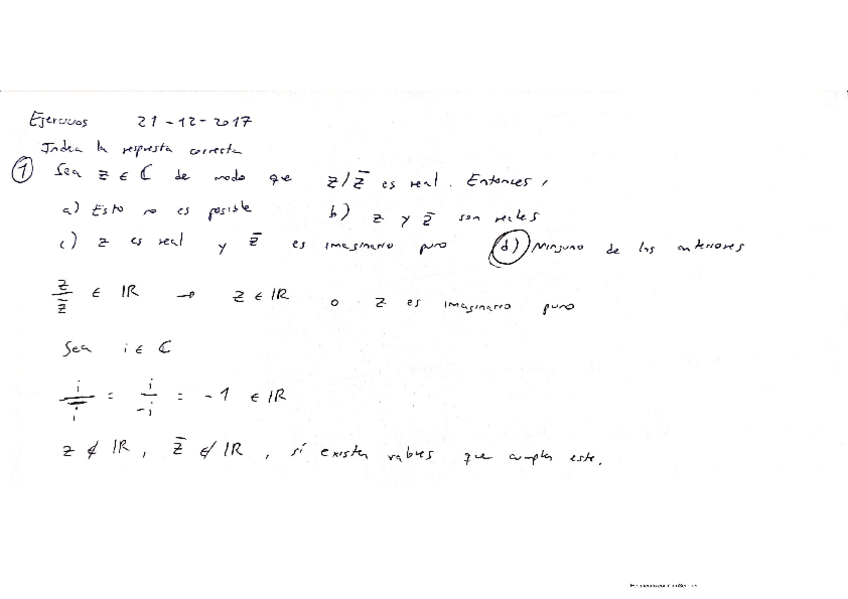 Ejercicios 21-12-2017
Indica la respuesta correcta
① Sea z ∈ ℂ de modo que z/z̄ es real. Entonces,
a) Esto no es posible b) z y z̄ son reales
c) z es real y z̄ es imaginario puro d) Ninguno de los anteriores
z/z̄ ∈ ℝ → z ∈ ℝ o z es imaginario puro
Sea i ∈ ℂ
i/ī = i/-i = -1 ∈ ℝ
z ∉ ℝ, z̄ ∉ ℝ, sí existen valores que cumplen este.